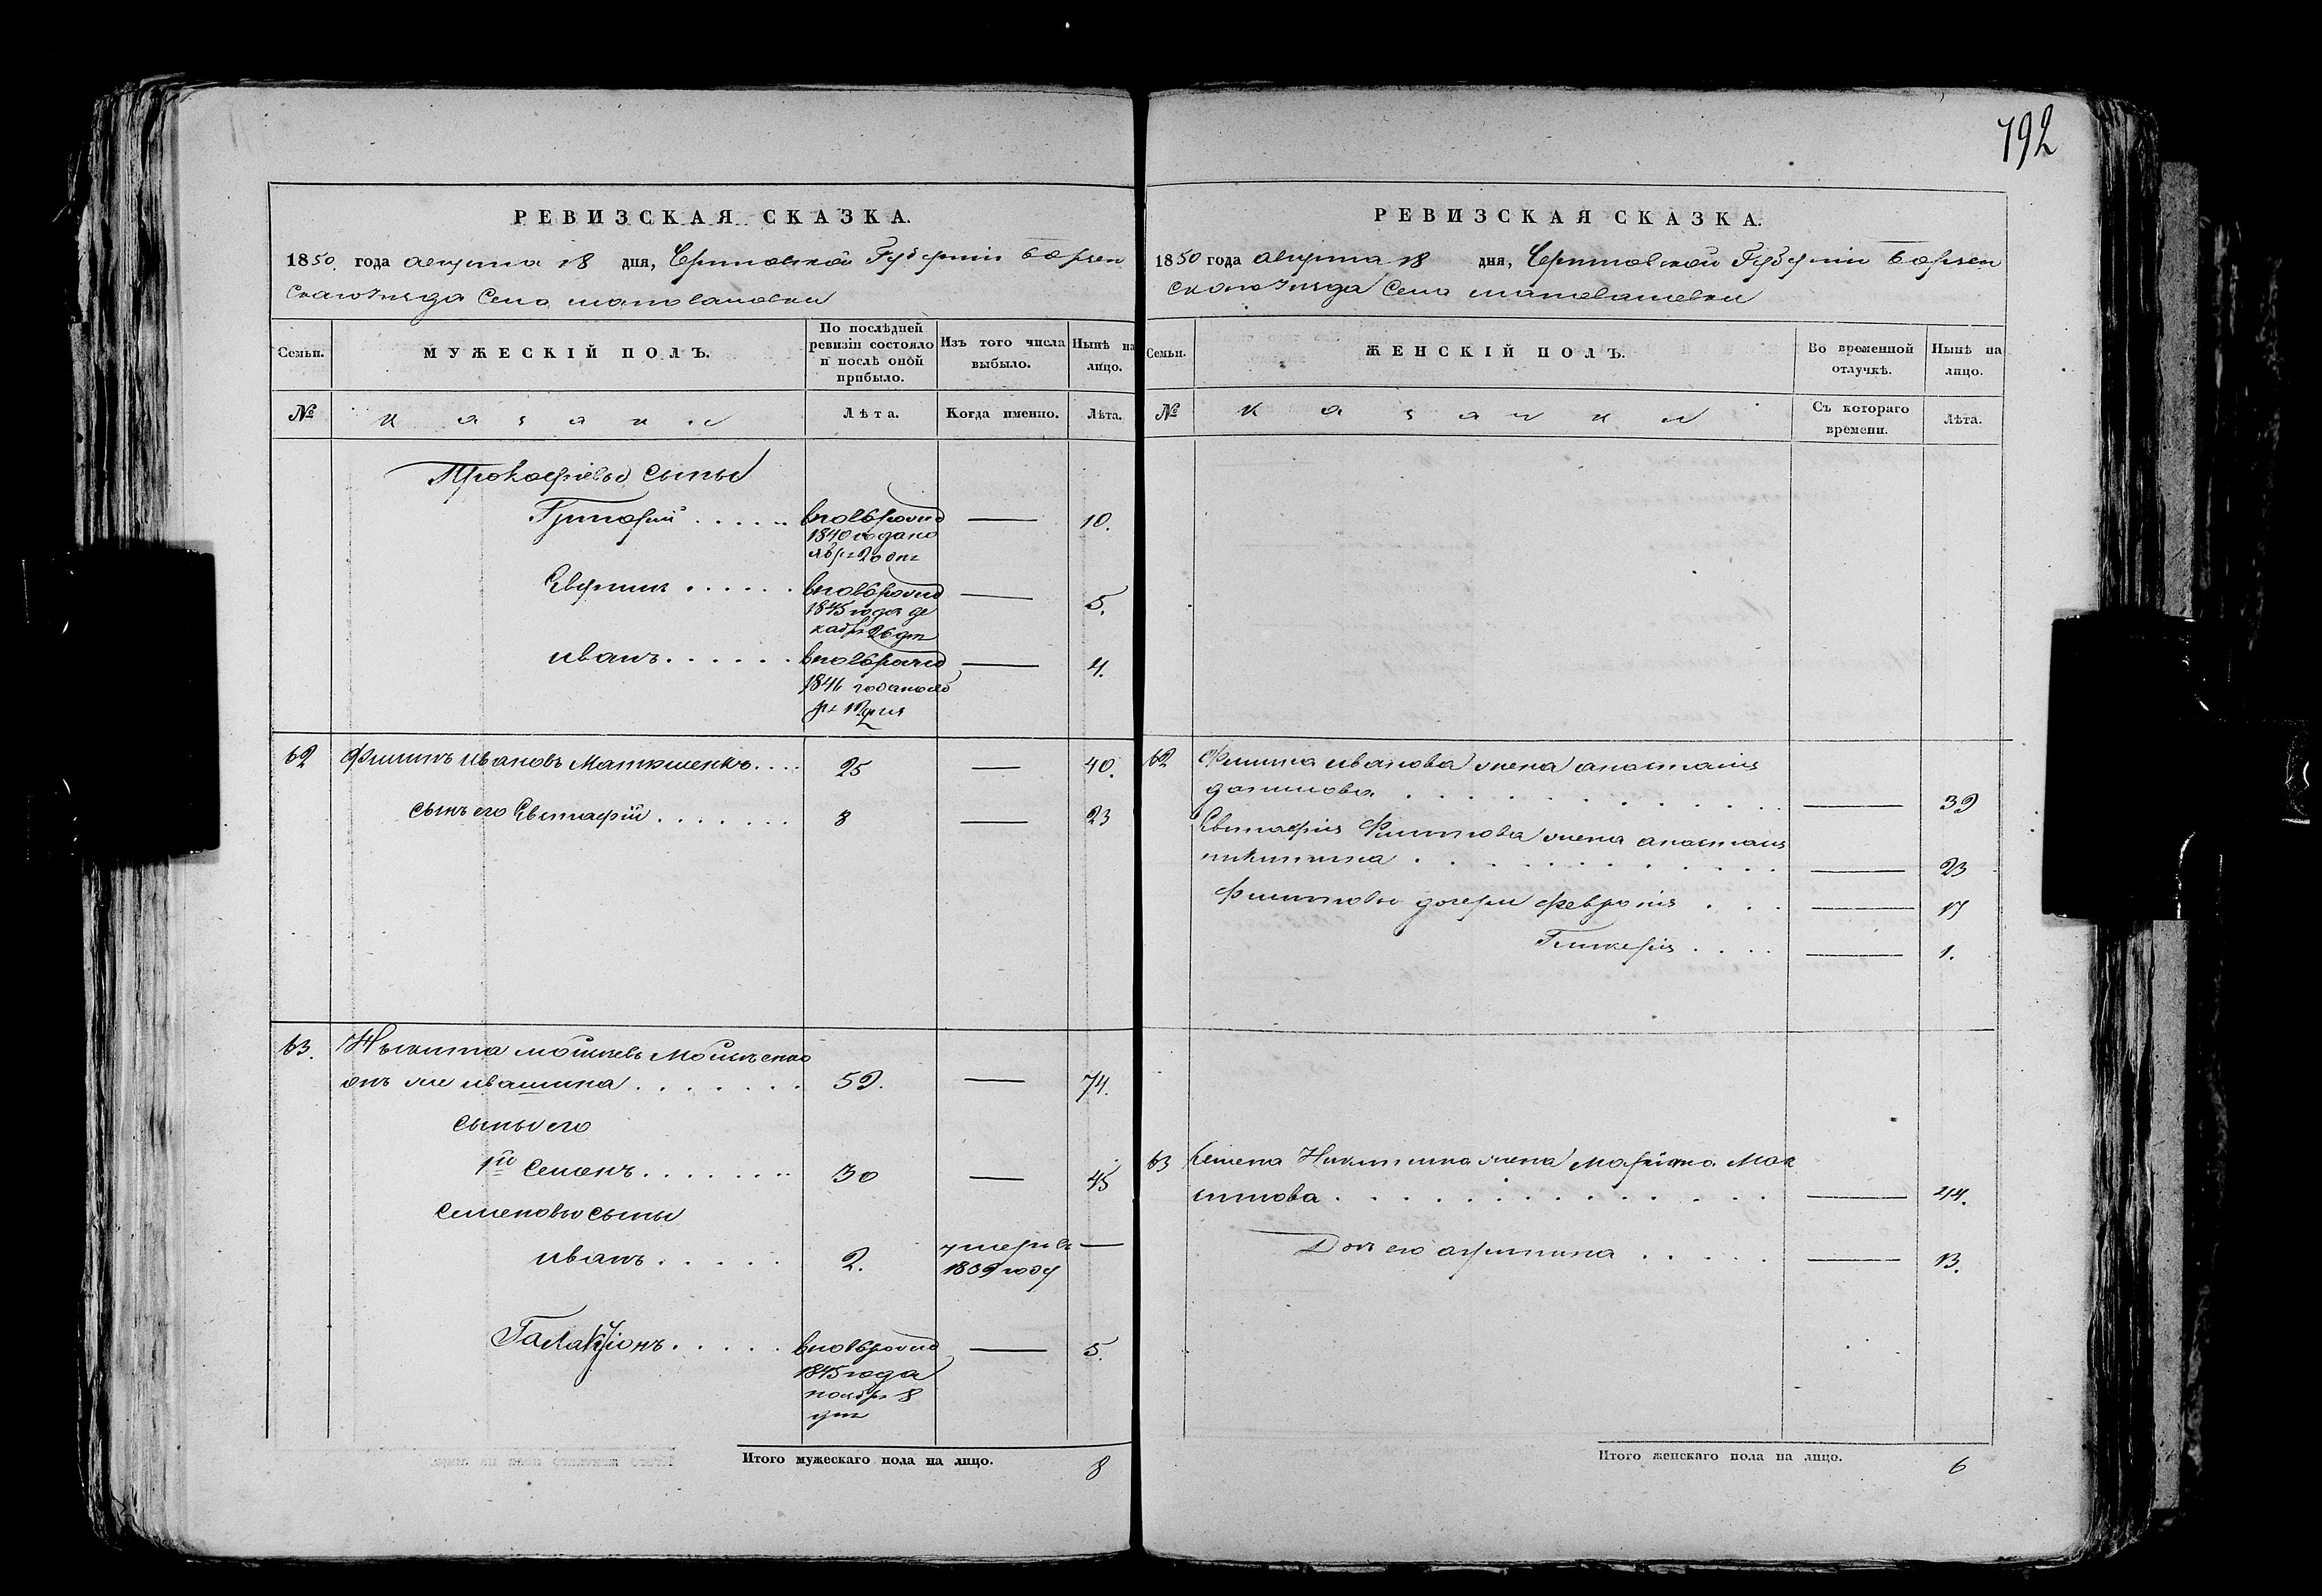 792
РЕВИЗСКАЯ СКАЗКА.
1850 года августа 18 дня, Черниговской Губернии Борзен
скаго уезда Села
Семьи. МУЖЕСКІЙ ПОЛЪ. По послѣдней ревизіи состояло и послѣ оной прибыло. Изъ того числа выбыло. Нынѣ на лицо.
№ казаки Лѣта. Когда именно. Лѣта.
Прокофіевы сыны
Григорий вновьрожд 1840 года но ября 20 дня — 10.
вновьрожд 1845 года де кабря 26 дня — 5.
иванъ вновьрожд 1846 года дня — 4.
62 Филипъ ивановъ 25 — 40.
сынъ его Евстафій 8 — 23
63. 
онъ же ивашина 59. — 74.
сыны его
1й Семенъ 30 — 45
Семеновы сыны
иванъ 2. умеръ в 1839 году —
Галакціонъ вновьрожд 1845 года ноября 8 дня — 5.
Итого мужескаго пола на лицо. 8
РЕВИЗСКАЯ СКАЗКА.
1850 года августа 18 дня, Черниговской Губернии Борзен
скаго уезда Села
Семьи. ЖЕНСКІЙ ПОЛЪ. Во временной отлучкѣ. Нынѣ на лицо.
№ Съ котораго времени. Лѣта.
62 Филипа иванова жена анастасия
данилова — 39
Евстафия Филипова жена анастасия
никитина — 23
Филиповы дочери феврония — 17
Гликерия — 1.
63 Семена Никитина жена Мак
симова — 44.
Дочь его — 13.
Итого женскаго пола на лицо. 6